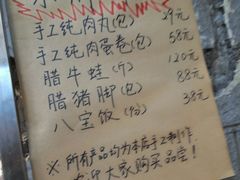 手工纯肉丸(包) 29元
手工纯肉蛋卷(包) 58元
腊牛蛙(斤) 120元
腊猪脚(包) 88元
八宝饭(份) 38元
※所有产品均为本店手工制作.
大家购买品尝!